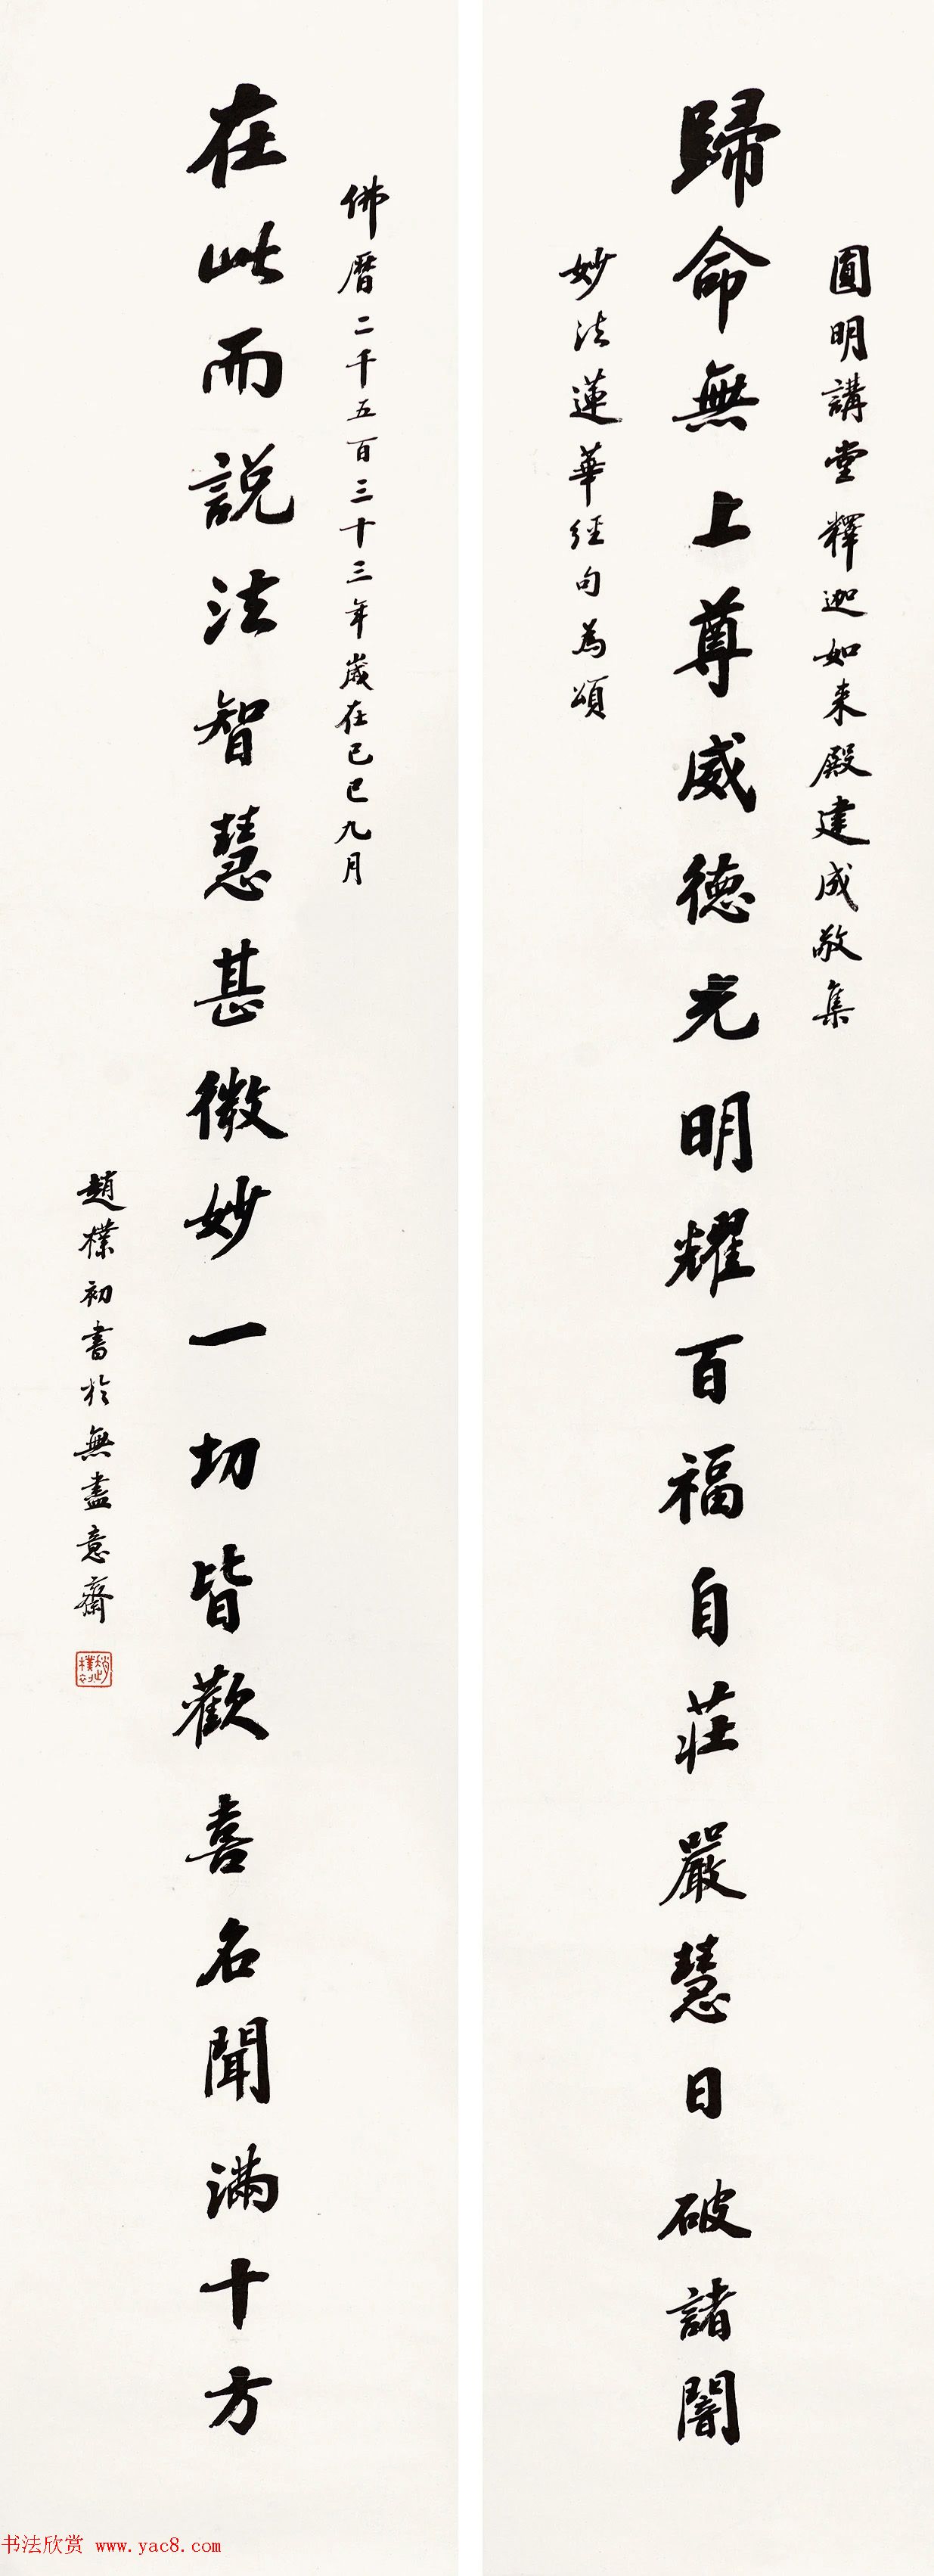 圓明講堂釋迦如来殿建成敬集
歸命無上尊威德光明耀百福自莊嚴慧日破諸闇
妙法蓮華經句為頌
佛曆二千五百三十三年歲在己巳九月
在此而説法智慧甚微妙一切皆歡喜名聞滿十方
趙樸初書於無盡意齋
趙樸初
书法欣赏 www.yac8.com